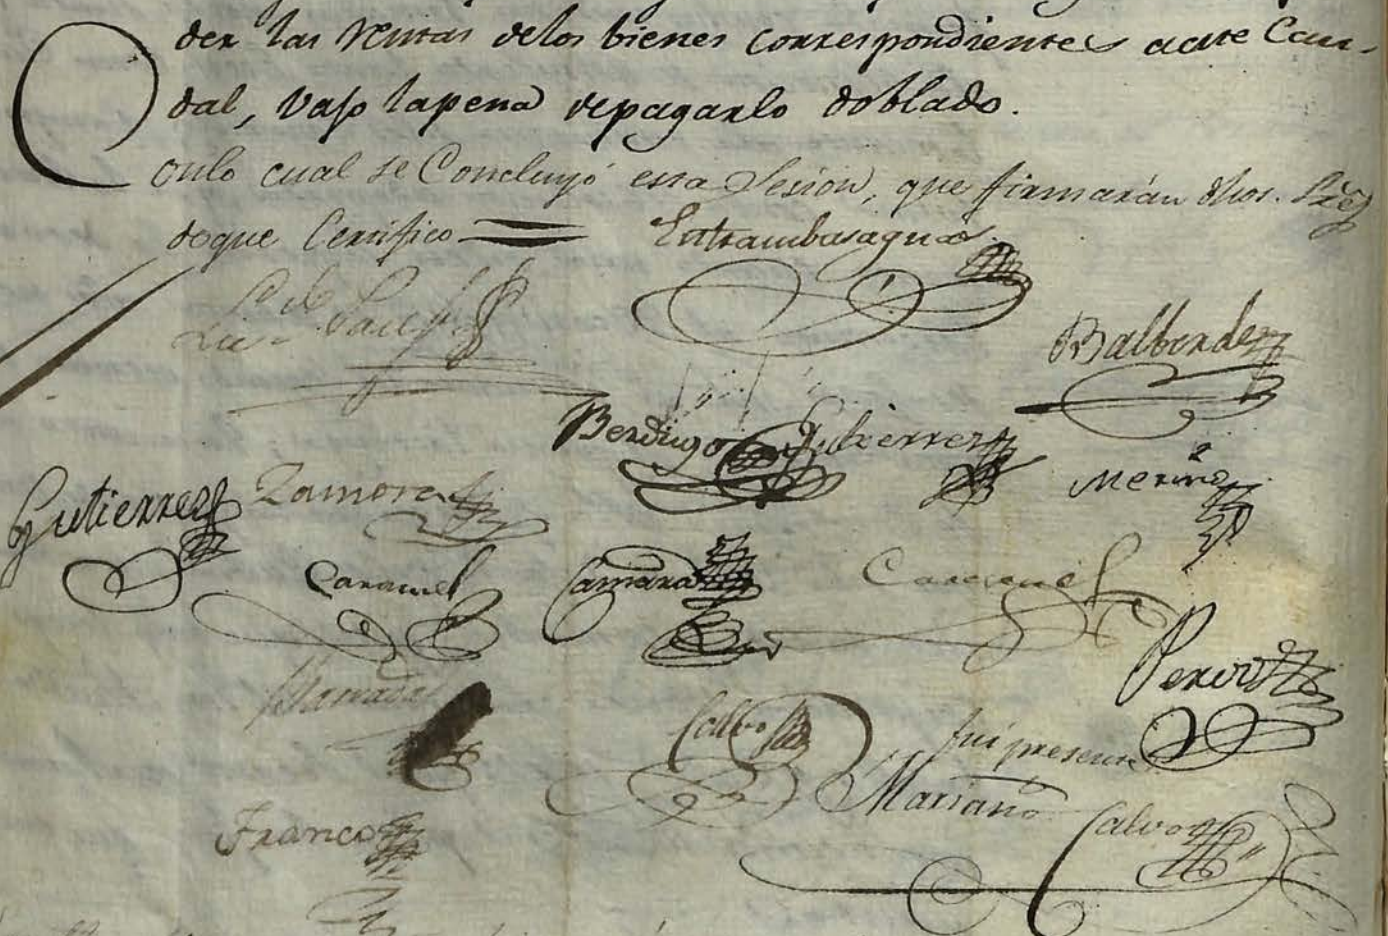 der las Rentas delos bienes correspondientes aeste Cau-
dal, vajo lapena depagarlo doblado.
Conlo cual se Concluyó esta Sesion, que firmarán dhos. Sres
deque Certifico
Entrambasaguas
Balberde
Berdugo
Gutierrez
Merino
Gutierrez
Zamora
Caramel
Camara
Caramel
Perez
Calbo
fui presente
Mariano
Calvo
Franco